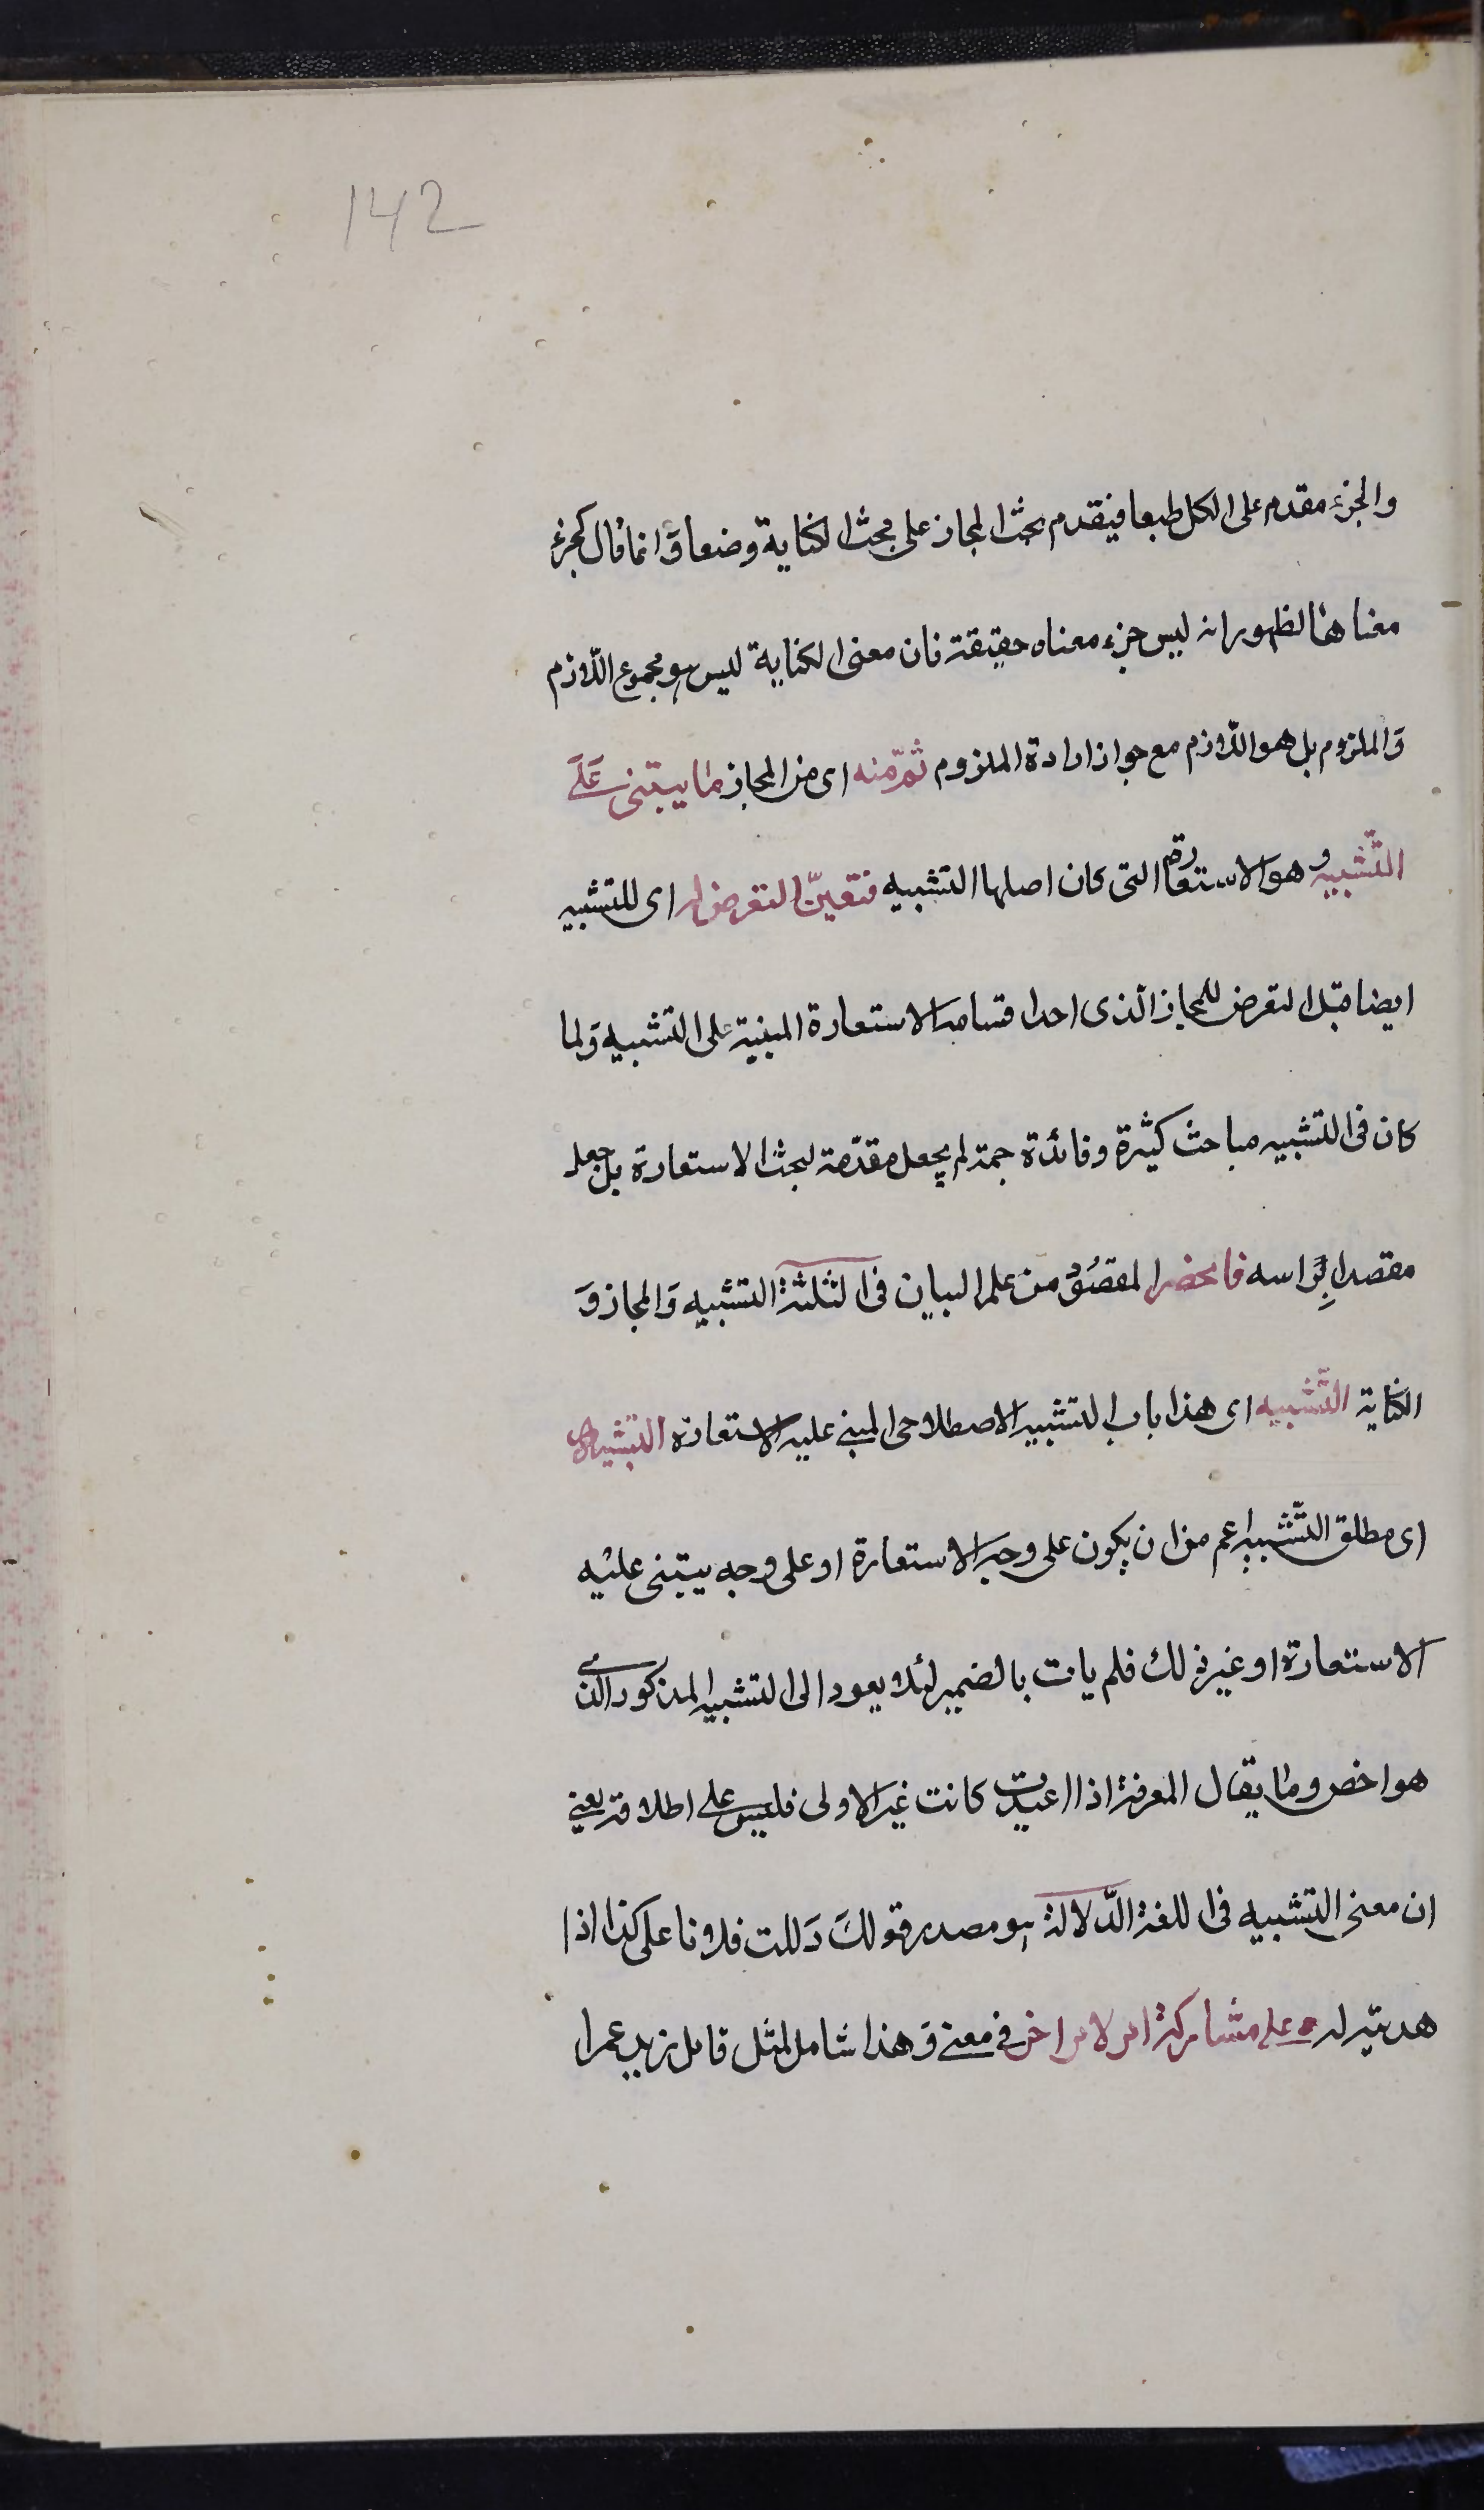 142
والجزء مقدم على الكل طبعا فيقدم بحث المجاز على بحث الكناية وضعا وَانما قال كجزء
معناها لظهور انه ليس جزء معناه حقيقة فان معنى الكناية ليس هو مجموع اللازم
وَالملزوم بل هو اللازم مع جواز ارادة الملزوم ثمّ منه اى من المجاز ما يبتنى عَلَى
التّشبيه وهو الاستعارة التى كان اصلها التشبيه فتعيّن التعرض له اى للتشبيه
ايضا قبل التعرض للمجاز الّذى احد اقسامه الاستعارة المبنية على التشبيه وَلما
كان فى التشبيه مباحث كثيرة وفائدة جمة لم يجعل مقدّمة لبحث الاستعارة بل جعل
مقصدا بِرَاسه فانحصر المقصُوْد من علم البيان فى الثلثة التشبيه وَالمجاز وَ
الكناية التّشبيه اى هذا باب التشبيه الاصطلاحى المبنى عليه الاستعارة التشبيه
اى مطلق التّشبيه اعم من ان يكون على وجه الاستعارة او على وجه يبتنى عليه
الاستعارة او غير ذلك فلم يات بالضمير لئلا يعود الى التشبيه المذكور الذى
هو اخص وما يقال المعرفة اذا اعيدت كانت غير الاولى فليس على اطلاقه يعنى
ان معنى التشبيه فى اللغة الدّلالة هو مصدر قولك دَللت فلانا على كذا اذا
هديته له على مشاركة امر لامر اخر فى معنى وَهذا شامل لمثل قاتل زيد عمرا